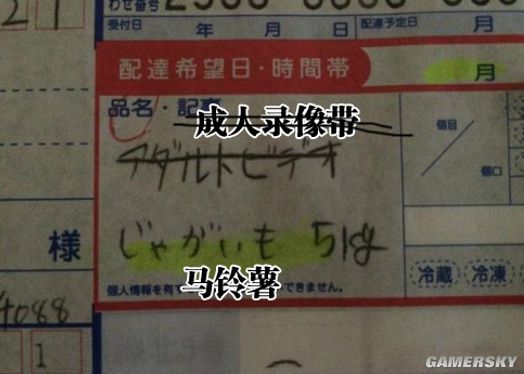 わせ番号
21
受付日 年 月 日 配達予定日
配達希望日・時間帯
月
品名・記
成人录像带
アダルトビデオ
個目
個口
じゃがいも 5kg
様
马铃薯
冷蔵 冷凍
個人情報を有す
できません。
4088
1
GAMERSKY